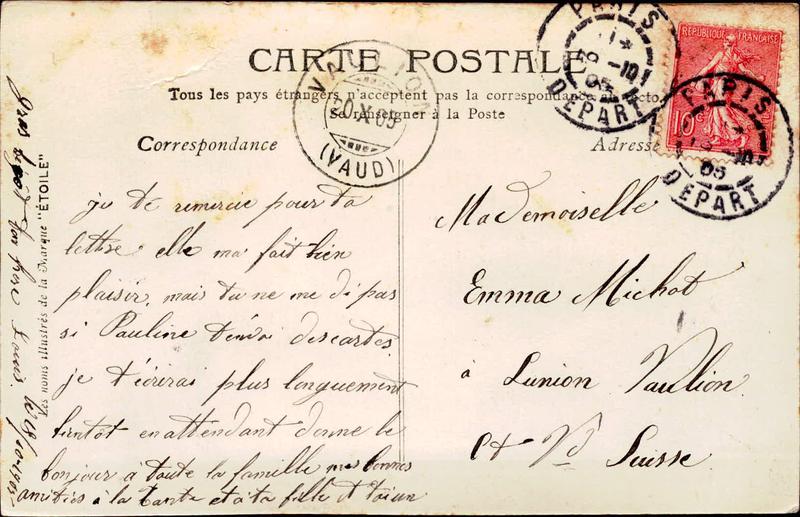 CARTE POSTALE
Tous les pays étrangers n'acceptent pas la correspondance au recto
Se renseigner à la Poste
Correspondance
Adresse
RÉPUBLIQUE FRANÇAISE
10c
PARIS
10
05
DEPART
PARIS
10
05
DEPART
VAULION
20.X.05
(VAUD)
je te remercie pour ta
lettre elle ma fait bien
plaisir, mais tu ne me di pas
si Pauline t'envoi des cartes.
je t'écrirai plus longuement
bientot en attendant donne le
bonjour à toute la famille mes bonnes
amitiés à la tante et à ta fille et toi un
gros Ton frère Louis. le 18/10/1905
Les noms illustrés de la Marque "ÉTOILE"
Mademoiselle
Emma Michot
à Lunion Vaulion.
Ct Vd Suisse